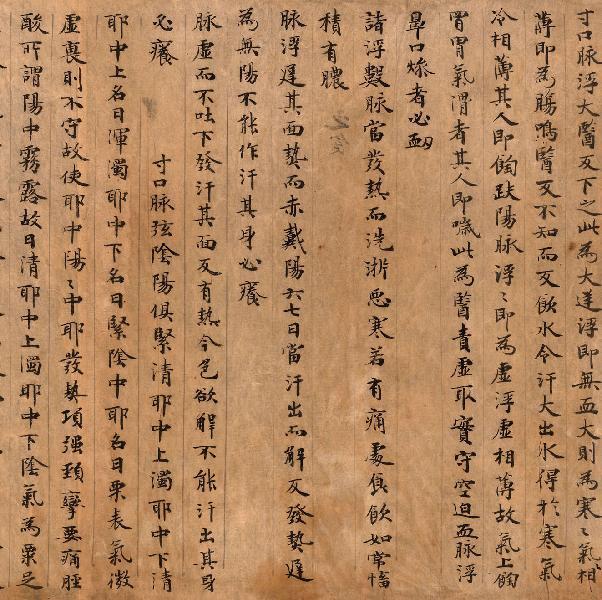 寸口脉浮大醫反下之此為大逆浮即無血大則為寒〻氣相
薄即為腸鳴醫反不知而反飲水令汗大出水得於寒氣
冷相薄其人即餉趺陽脉浮〻即為虛浮虛相薄故氣上餉
胃胃氣滑者其人即噦此為醫責虛取實守空迫血脉浮
鼻口燥者必衂
諸浮數脉當發熱而洗淅惡寒若有痛處食飲如常慉
積有膿
脉浮遲其面熱而赤戴陽六七日當汗出而解反發熱遲
為無陽不能作汗其身必癢
脉虛而不吐下發汗其面反有熱令色欲解不能汗出其身
必癢　寸口脉弦陰陽俱緊清耶中上濁耶中下清
耶中上名曰渾濁耶中下名曰緊陰中耶名曰栗表氣微
虛裏則不守故使耶中陽〻中耶發熱項强頸攣要痛脛
酸所謂陽中霧露故曰清耶中上濁耶中下陰氣為栗足